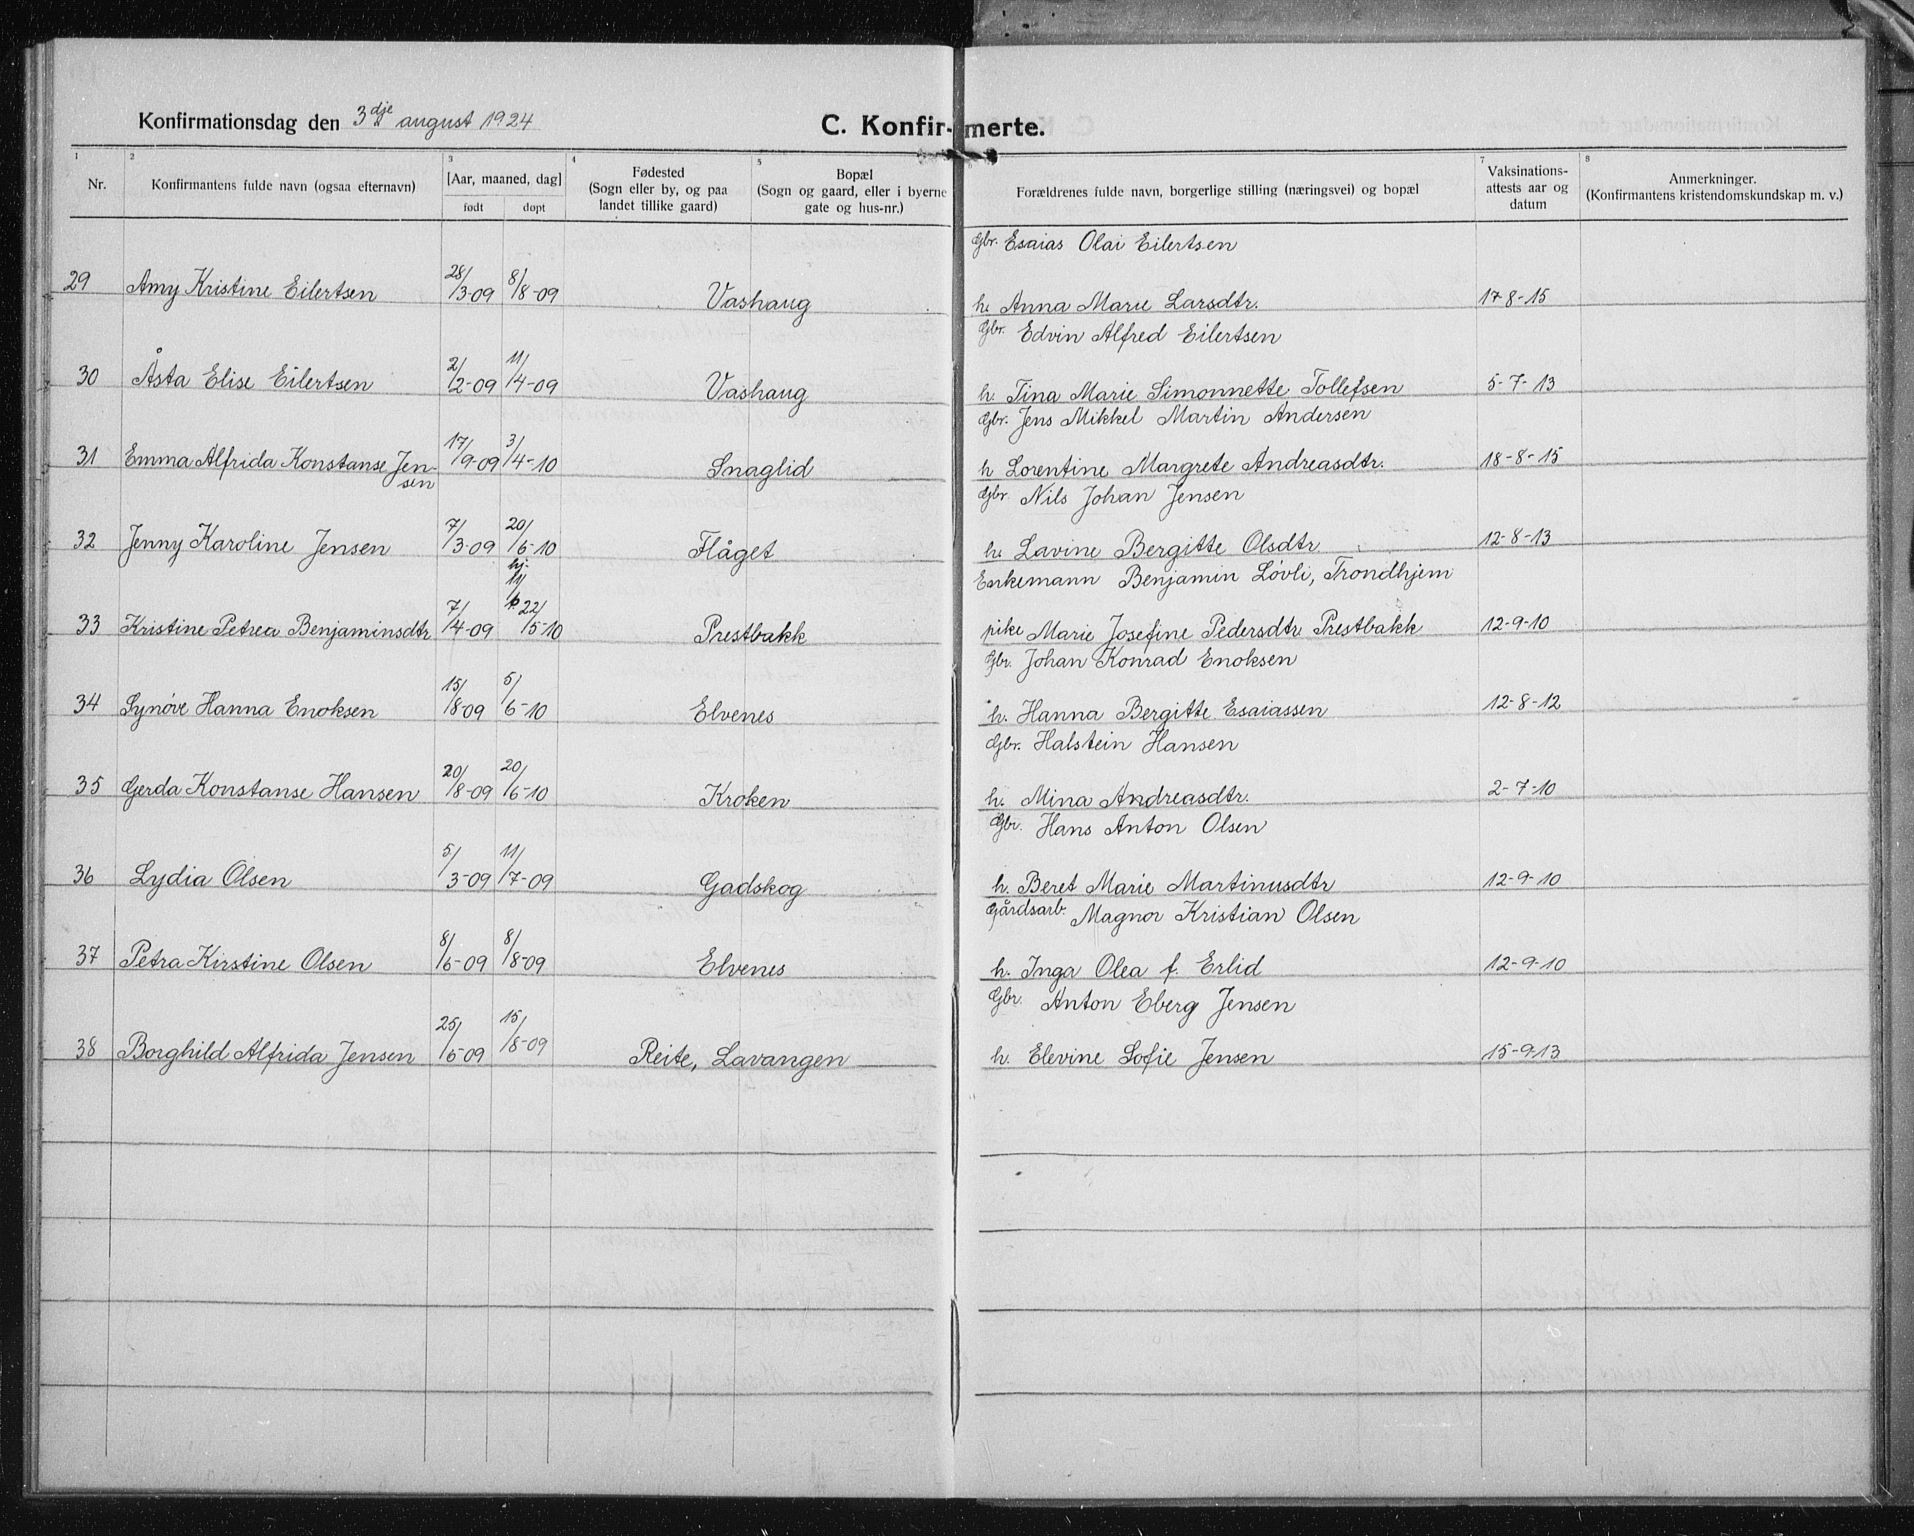 Konfirmationsdag den 3dje august 1924
C. Konfirmerte.
1 2 3 4 5 7 8
Nr. Konfirmantens fulde navn (ogsaa efternavn) [Aar, maaned, dag] født døpt Fødested (Sogn eller by, og paa landet tillike gaard) Bopæl (Sogn og gaard, eller i byerne gate og hus-nr.) Forældrenes fulde navn, borgerlige stilling (næringsvei) og bopæl Vaksinations-attests aar og datum Anmerkninger. (Konfirmantens kristendomskundskap m. v.)
Gbr. Esaias Olai Eilertsen
29 Amy Kristine Eilertsen 28/3-09 8/8-09 Vashaug h. Anna Marie Larsdtr. 17-8-15
Gbr. Edvin Alfred Eilertsen
30 Åsta Elise Eilertsen 2/2-09 11/4-09 Vashaug h. Tina Marie Simonnette Tollefsen 5-7-13
Gbr. Jens Mikkel Martin Andersen
31 Emma Alfrida Konstanse Jen- 17/9-09 3/4-10 Snaglid h Lorentine Margrete Andreasdtr. 18-8-15
sen
Gbr. Nils Johan Jensen
32 Jenny Karoline Jensen 7/3-09 20/6-10 Flåget h. Lavine Bergitte Olsdtr 12-8-13
hj.
Enkemann Benjamin Løvli, Trondhjem
33 Kristine Petrea Benjaminsdtr 7/4-09 22/5-10 Prestbakk pike Marie Josefine Pedersdtr Prestbakk 12-9-10
Gbr. Johan Konrad Enoksen
34 Synøve Hanna Enoksen 15/8-09 5/6-10 Elvenes h. Hanna Bergitte Esaiassen 12-8-12
Gbr. Halstein Hansen
35 Gerda Konstanse Hansen 20/8-09 20/6-10 Kroken h. Mina Andreasdtr. 2-7-10
Gbr. Hans Anton Olsen
36 Lydia Olsen 5/3-09 11/7-09 Gadskog h. Beret Marie Martinusdtr 12-9-10
Gårdsarb. Magnor Kristian Olsen
37 Petra Kirstine Olsen 8/6-09 8/8-09 Elvenes h. Inga Olea f. Erlid 12-9-10
Gbr. Anton Eberg Jensen
38 Borghild Alfrida Jensen 25/5-09 15/8-09 Reite, Lavangen h. Elevine Sofie Jensen 15-9-13